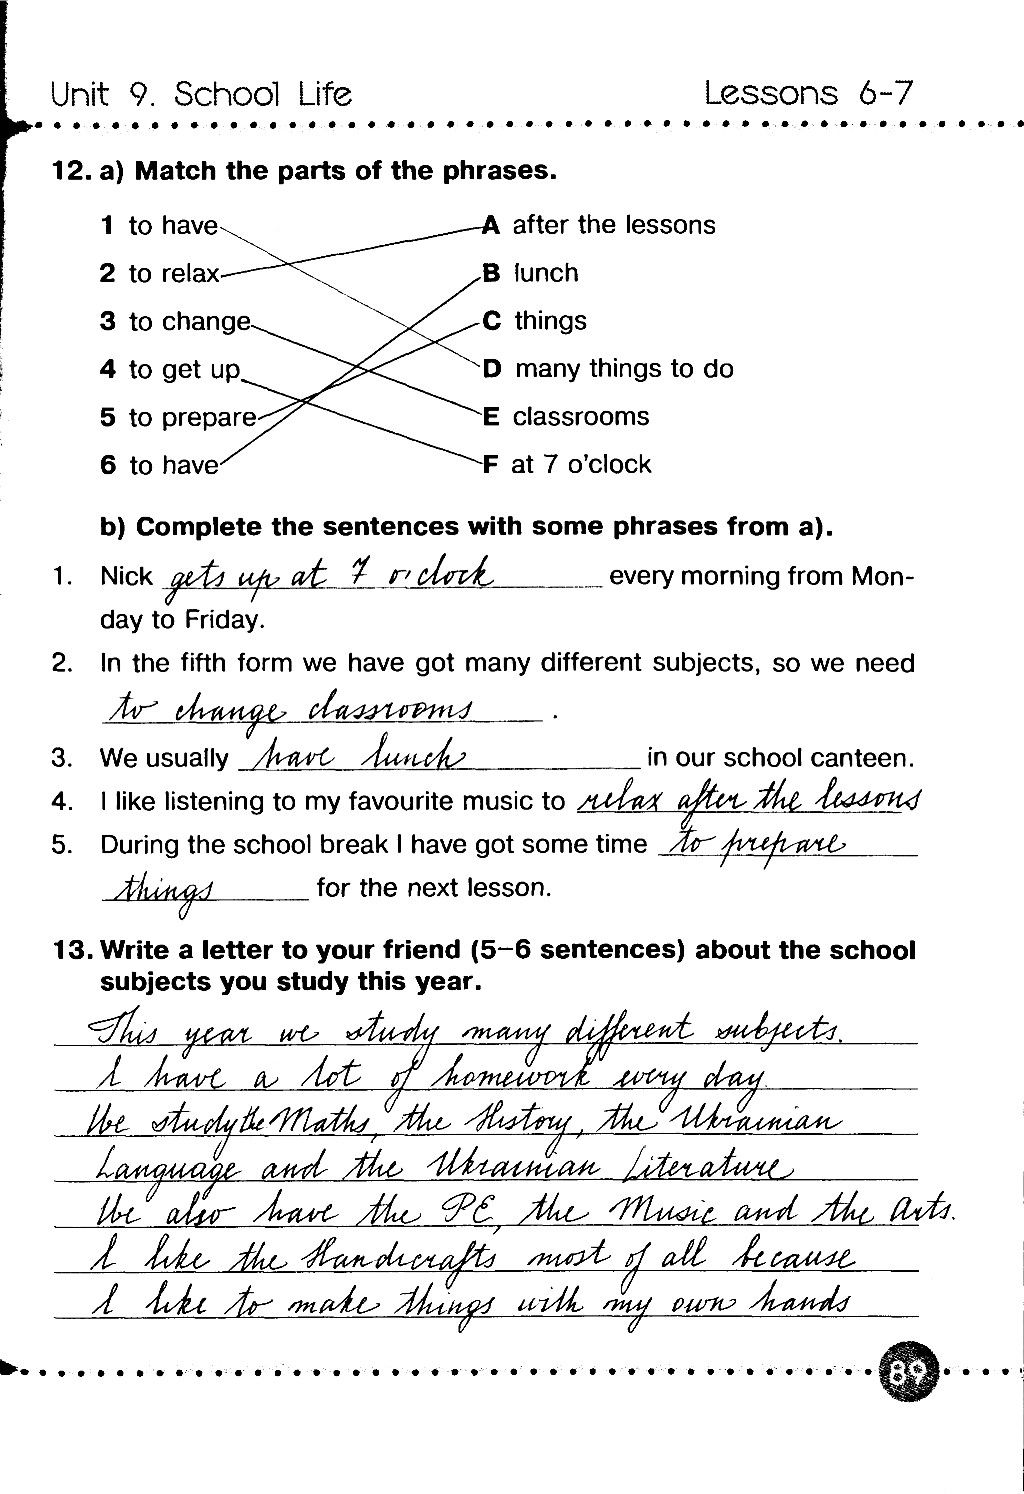 Unit 9. School Life Lessons 6-7
12. a) Match the parts of the phrases.
1 to have A after the lessons
2 to relax B lunch
3 to change C things
4 to get up D many things to do
5 to prepare E classrooms
6 to have F at 7 o'clock
b) Complete the sentences with some phrases from a).
1. Nick gets up at 7 o'clock every morning from Mon-
day to Friday.
2. In the fifth form we have got many different subjects, so we need
to change classrooms .
3. We usually have lunch in our school canteen.
4. I like listening to my favourite music to relax after the lessons
5. During the school break I have got some time to prepare
things for the next lesson.
13. Write a letter to your friend (5–6 sentences) about the school
subjects you study this year.
This year we study many different subjects.
I have a lot of homework every day
We study the Maths, the History, the Ukrainian
Language and the Ukrainian Literature
We also have the PE, the Music and the Arts.
I like the Handicrafts most of all because
I like to make things with my own hands
89